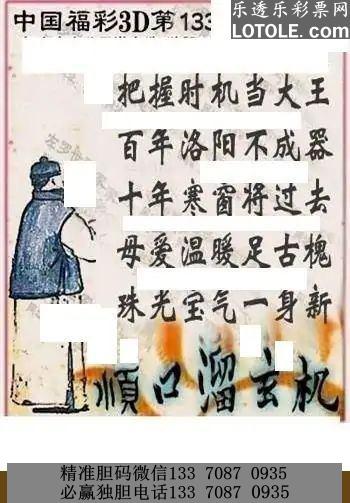 中国福彩3D第133
乐透乐彩票网
LOTOLE.COM
把握时机当大王
百年洛阳不成器
十年寒窗将过去
母爱温暖足古槐
珠光宝气一身新
順口溜玄机
精准胆码微信133 7087 0935
必赢独胆电话133 7087 0935